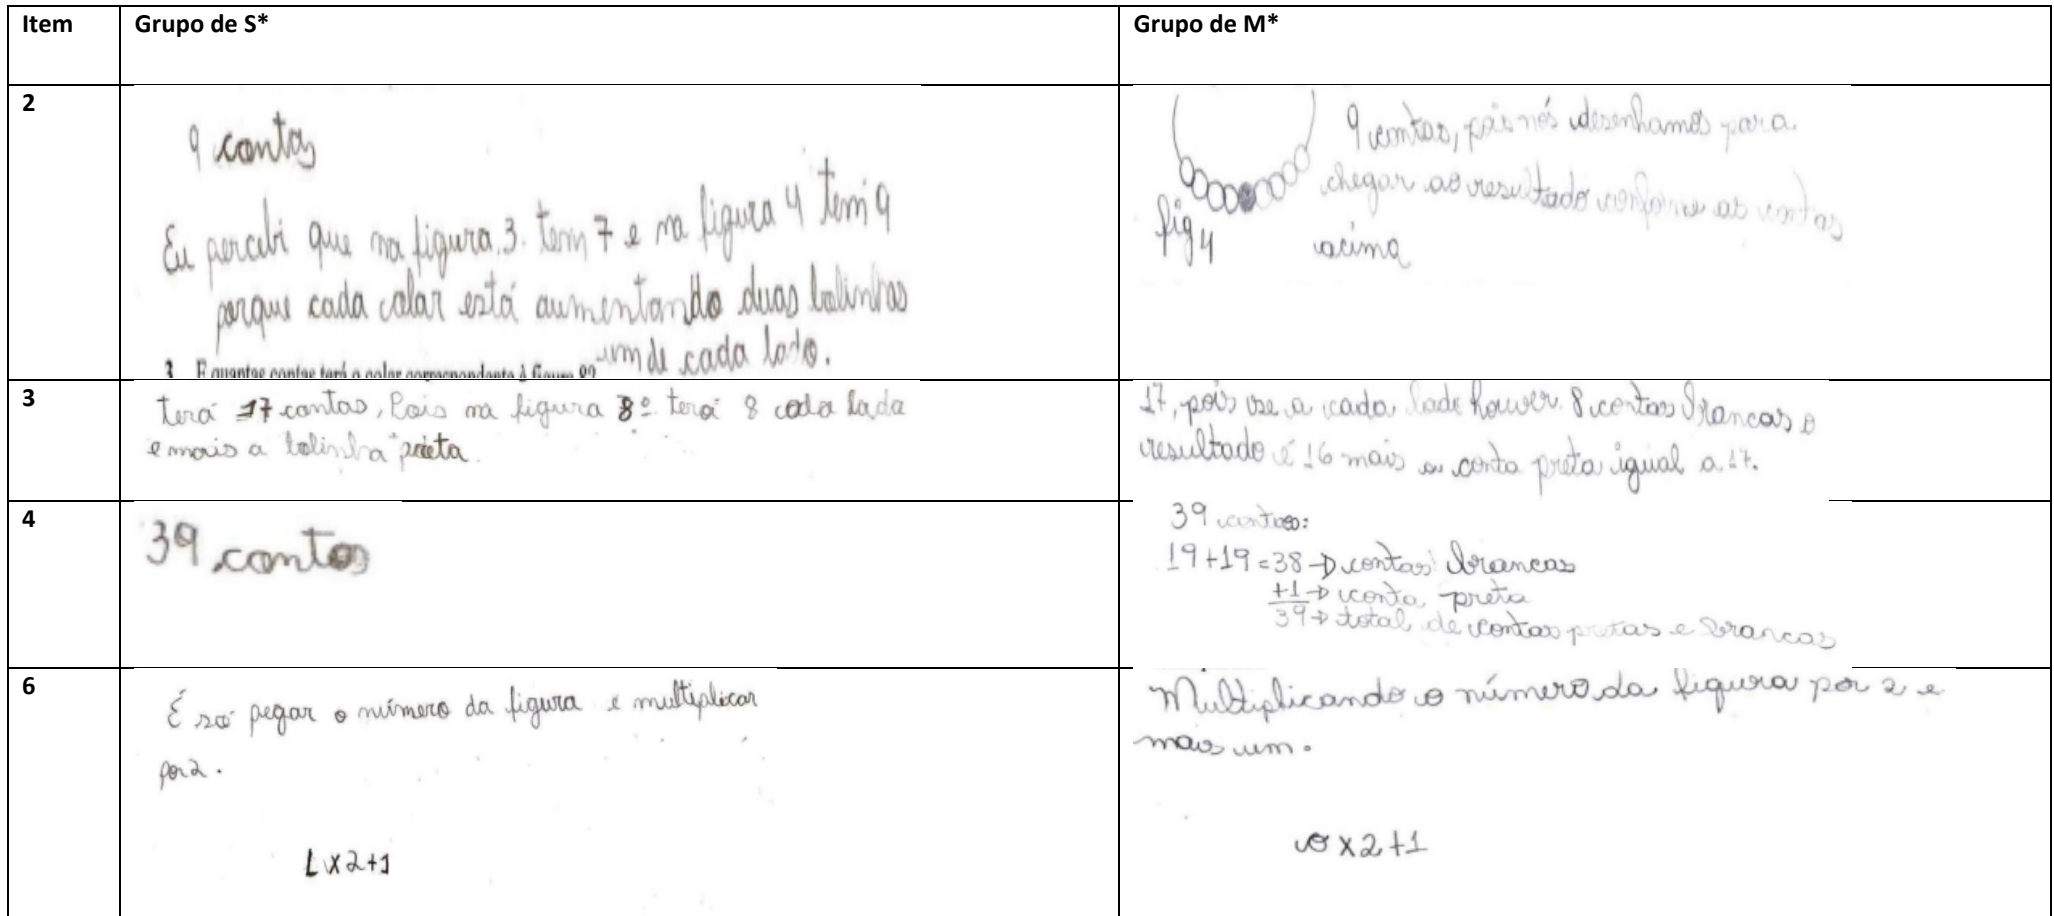 Item
Grupo de S*
Grupo de M*
2
9 contas
Eu percebi que na figura 3. tem 7 e na figura 4 tem 9
porque cada colar está aumentando duas bolinhas
um de cada lado.
3. E quantas contas terá o colar correspondente à figura 8?
9 contas, pois nós desenhamos para
chegar ao resultado conforme as contas
acima
fig 4
3
terá 17 contas, Pois na figura 8º terá 8 cada lado
e mais a bolinha preta.
17, pois se a cada lado houver 8 contas brancas o
resultado é 16 mais a conta preta igual a 17.
4
39 contas
39 contas:
19+19=38→contas brancas
+1→conta preta
39→total de contas pretas e brancas
6
É só pegar o número da figura e multiplicar
por 2.
L x2+1
Multiplicando o número da figura por 2 e
mais um.
x2+1